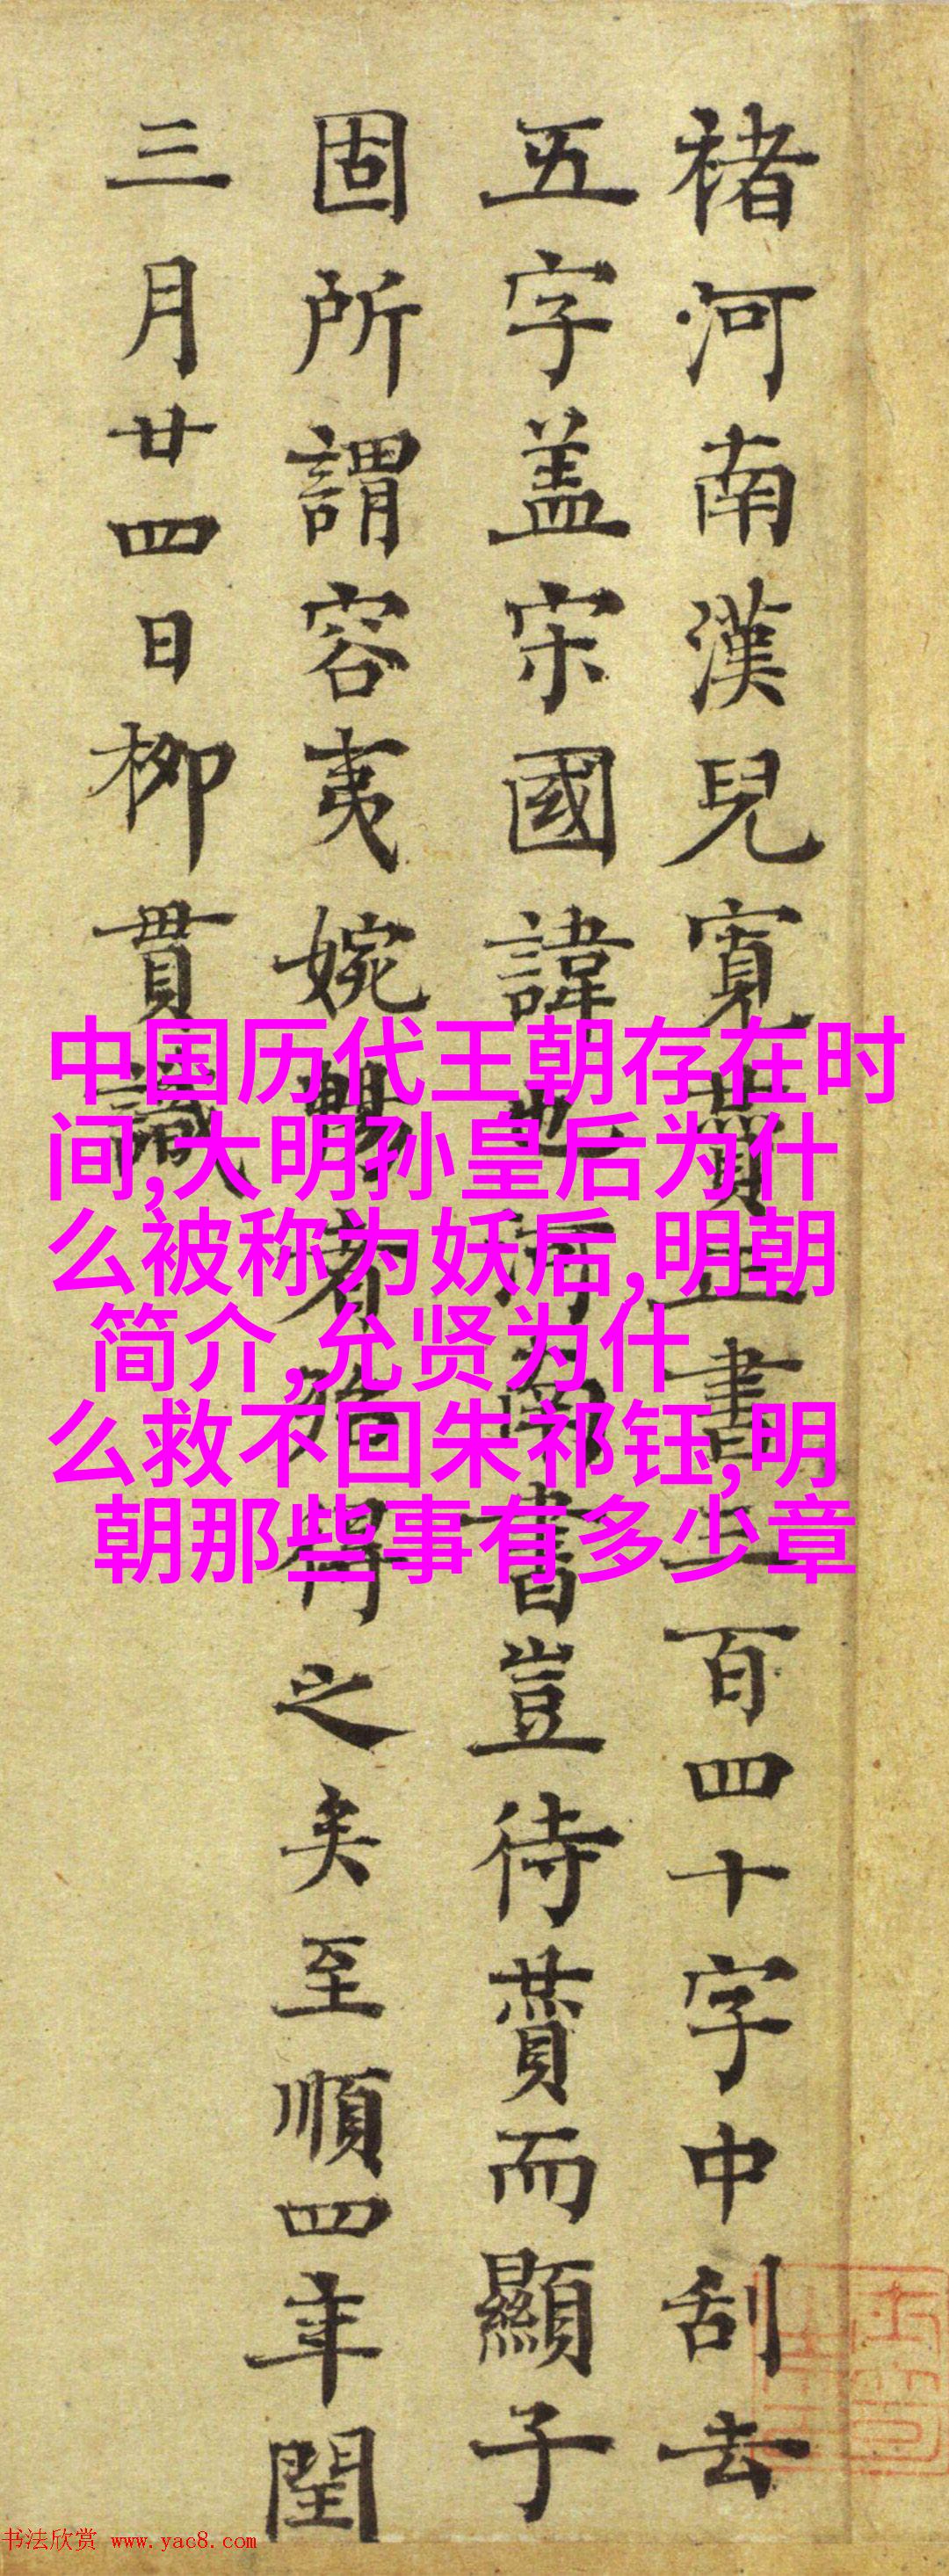 褚河南漢兒寬賛正書三百四十字中刮去
五字盖宋國諱也河南書豈待賛而顯子
固所謂容夷婉暢者殆得之矣至順四年閏
三月廿四日柳貫識
中国历代王朝存在时
间,大明孙皇后为什
么被称为妖后,明朝
简介,允贤为什
么救不回朱祁钰,明
朝那些事有多少章
书法欣赏 www.yac8.com